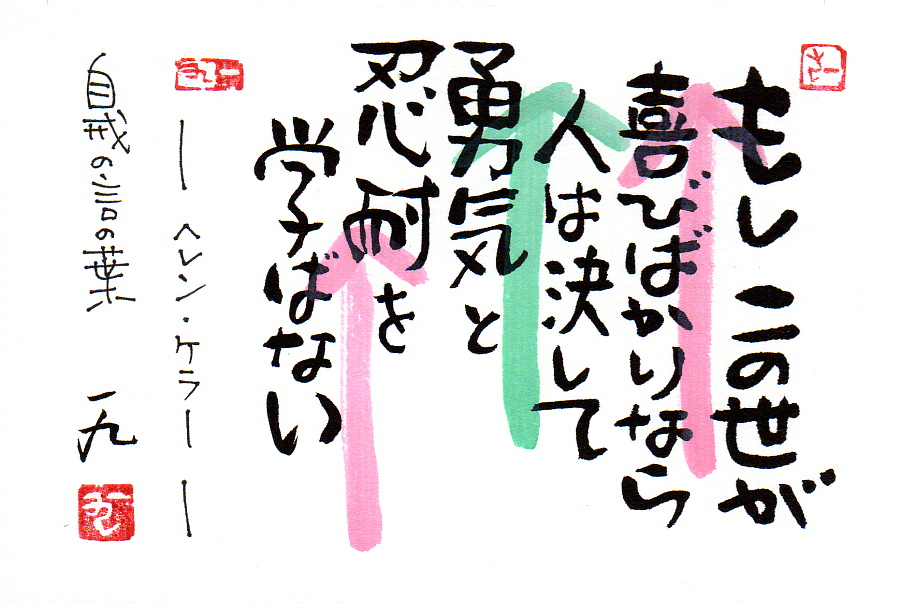 もし この世が
喜びばかりなら
人は決して
勇気と
忍耐を
学ばない
― ヘレン・ケラー ―
自戒の言の葉 一九